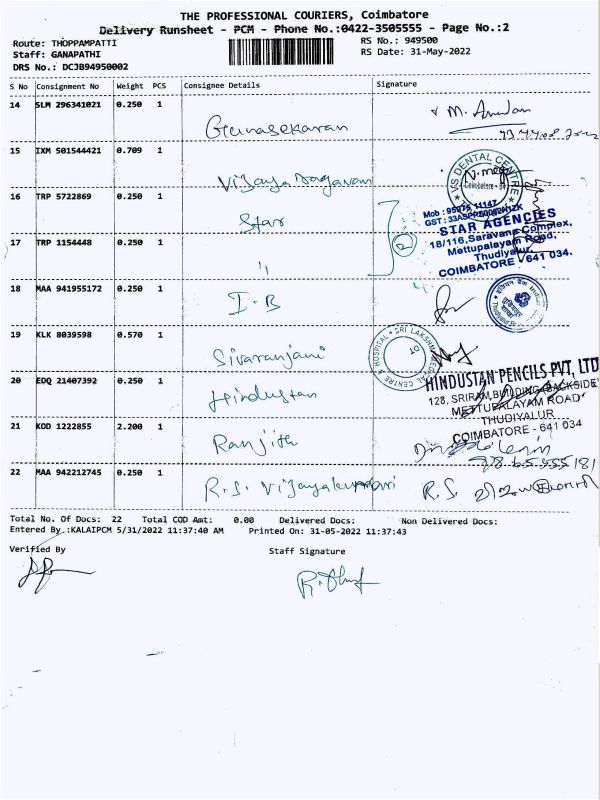 THE PROFESSIONAL COURIERS, Coimbatore
Delivery Runsheet - PCM - Phone No.:0422-3505555 - Page No.:2
Route: THOPPAMPATTI
RS No.: 949500
Staff: GANAPATHI
RS Date: 31-May-2022
DRS No.: DCJB94950002
S No Consignment No Weight PCS Consignee Details Signature
14 SLM 296341021 0.250 1
Gunasekaran
M.
15 IXM 501544421 0.709 1
Vijaya Ragavan
VS DENTAL CENTRE
Coimbatore
16 TRP 5722869 0.250 1
Star
STAR AGENCIES
18/116,Saravana Complex,
Mettupalayam Road,
Thudiyalur
COIMBATORE - 641 034.
17 TRP 1154448 0.250 1
"
2
18 MAA 941955172 0.250 1
I.B
19 KLK 8039598 0.570 1
Sivaranjani
SRI LAKSHMI MEDICAL CENTRE & HOSPITAL
20 EDQ 21407392 0.250 1
Hindustan
HINDUSTAN PENCILS PVT, LTD
128, SRIRAM BUILDING (BACKSIDE
METTUPALAYAM ROAD
THUDIYALUR
COIMBATORE - 641 034
21 KOD 1222855 2.200 1
Ranjith
22 MAA 942212745 0.250 1
R.S. Vijayakumari
R.S.
Total No. Of Docs: 22 Total COD Amt: 0.00 Delivered Docs: Non Delivered Docs:
Entered By :KALAIPCM 5/31/2022 11:37:40 AM Printed On: 31-05-2022 11:37:43
Verified By
Staff Signature